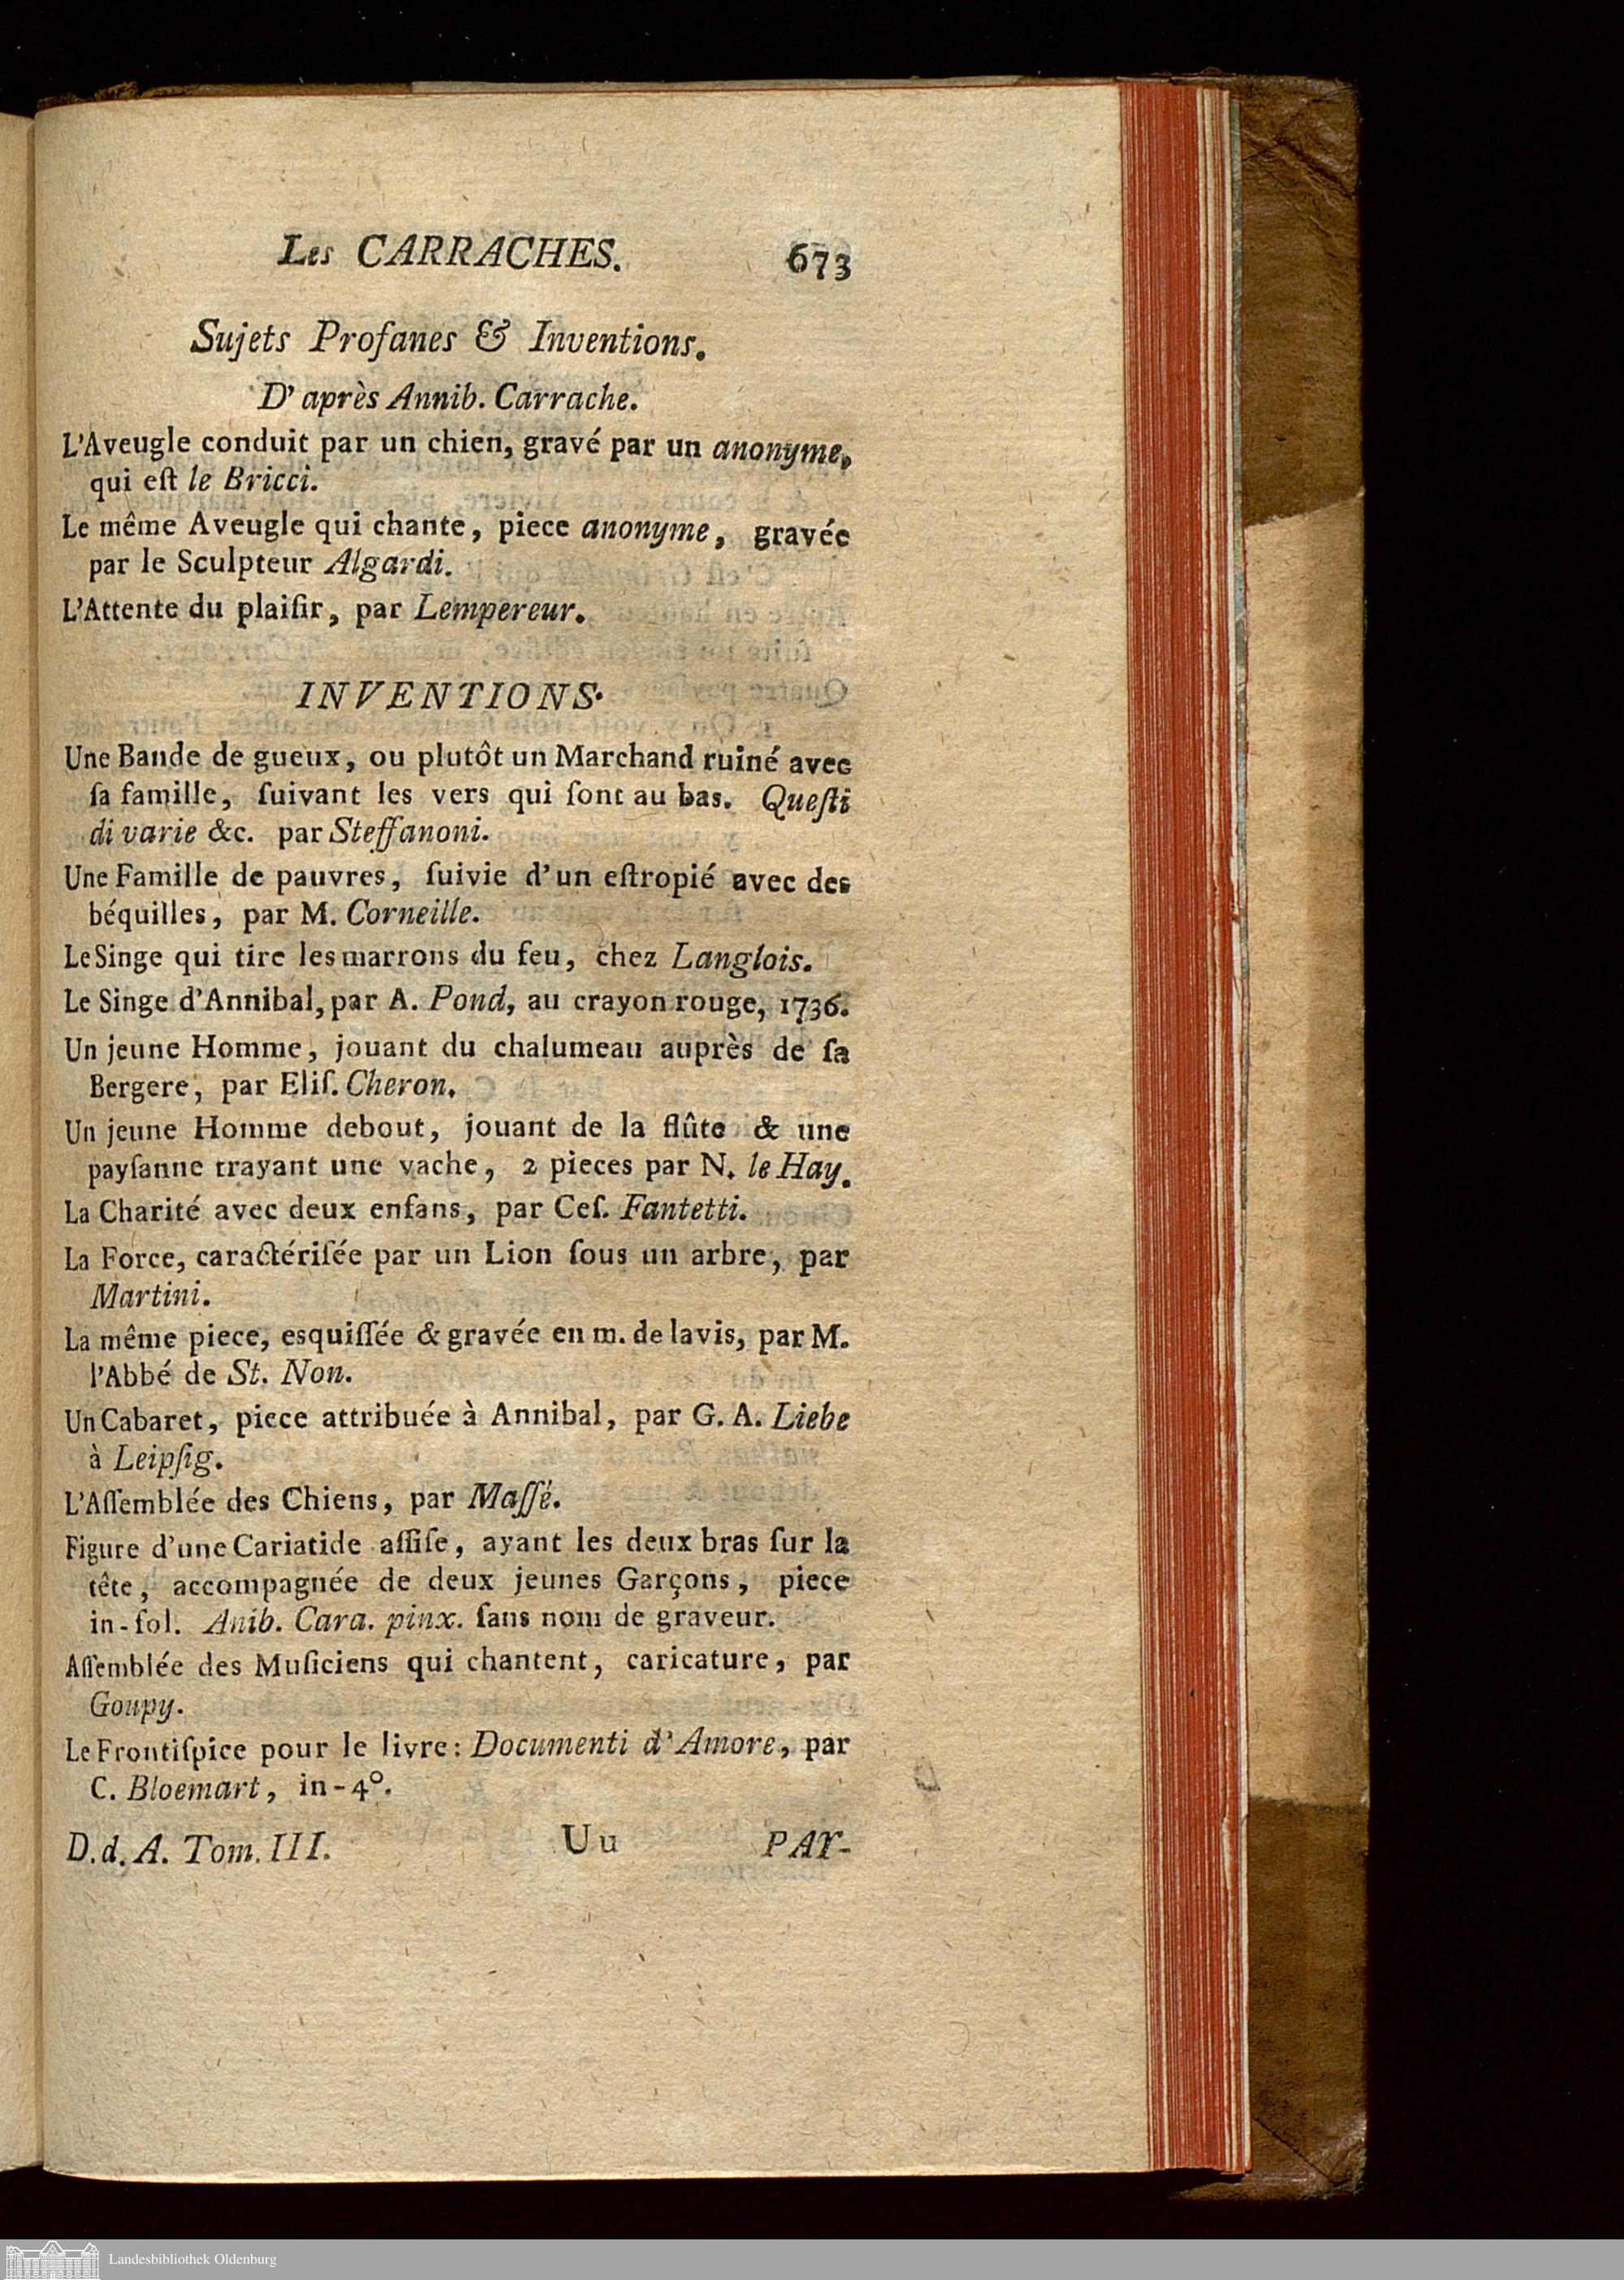 Les CARRACHES. 673
Sujets Profanes & Inventions.
D'après Annib. Carrache.
L'Aveugle conduit par un chien, gravé par un anonyme,
qui eſt le Bricci.
Le même Aveugle qui chante, piece anonyme, gravée
par le Sculpteur Algardi.
L'Attente du plaiſir, par Lempereur.
INVENTIONS.
Une Bande de gueux, ou plutôt un Marchand ruiné avec
ſa famille, ſuivant les vers qui ſont au bas. Queſti
di varie &c. par Steffanoni.
Une Famille de pauvres, ſuivie d'un eſtropié avec des
béquilles, par M. Corneille.
Le Singe qui tire les marrons du feu, chez Langlois.
Le Singe d'Annibal, par A. Pond, au crayon rouge, 1736.
Un jeune Homme, jouant du chalumeau auprès de ſa
Bergere, par Eliſ. Cheron.
Un jeune Homme debout, jouant de la flûte & une
payſanne trayant une vache, 2 pieces par N. le Hay.
La Charité avec deux enfans, par Ceſ. Fantetti.
La Force, caractériſée par un Lion ſous un arbre, par
Martini.
La même piece, esquiſſée & gravée en m. de lavis, par M.
l'Abbé de St. Non.
Un Cabaret, piece attribuée à Annibal, par G. A. Liebe
à Leipſig.
L'Aſſemblée des Chiens, par Maſſé.
Figure d'une Cariatide aſſiſe, ayant les deux bras ſur la
tête, accompagnée de deux jeunes Garçons, piece
in-fol. Anib. Cara. pinx. ſans nom de graveur.
Aſſemblée des Muſiciens qui chantent, caricature, par
Goupy.
Le Frontiſpice pour le livre: Documenti d'Amore, par
C. Bloemart, in-4°.
D. d. A. Tom. III. Uu PAY-
Landesbibliothek Oldenburg